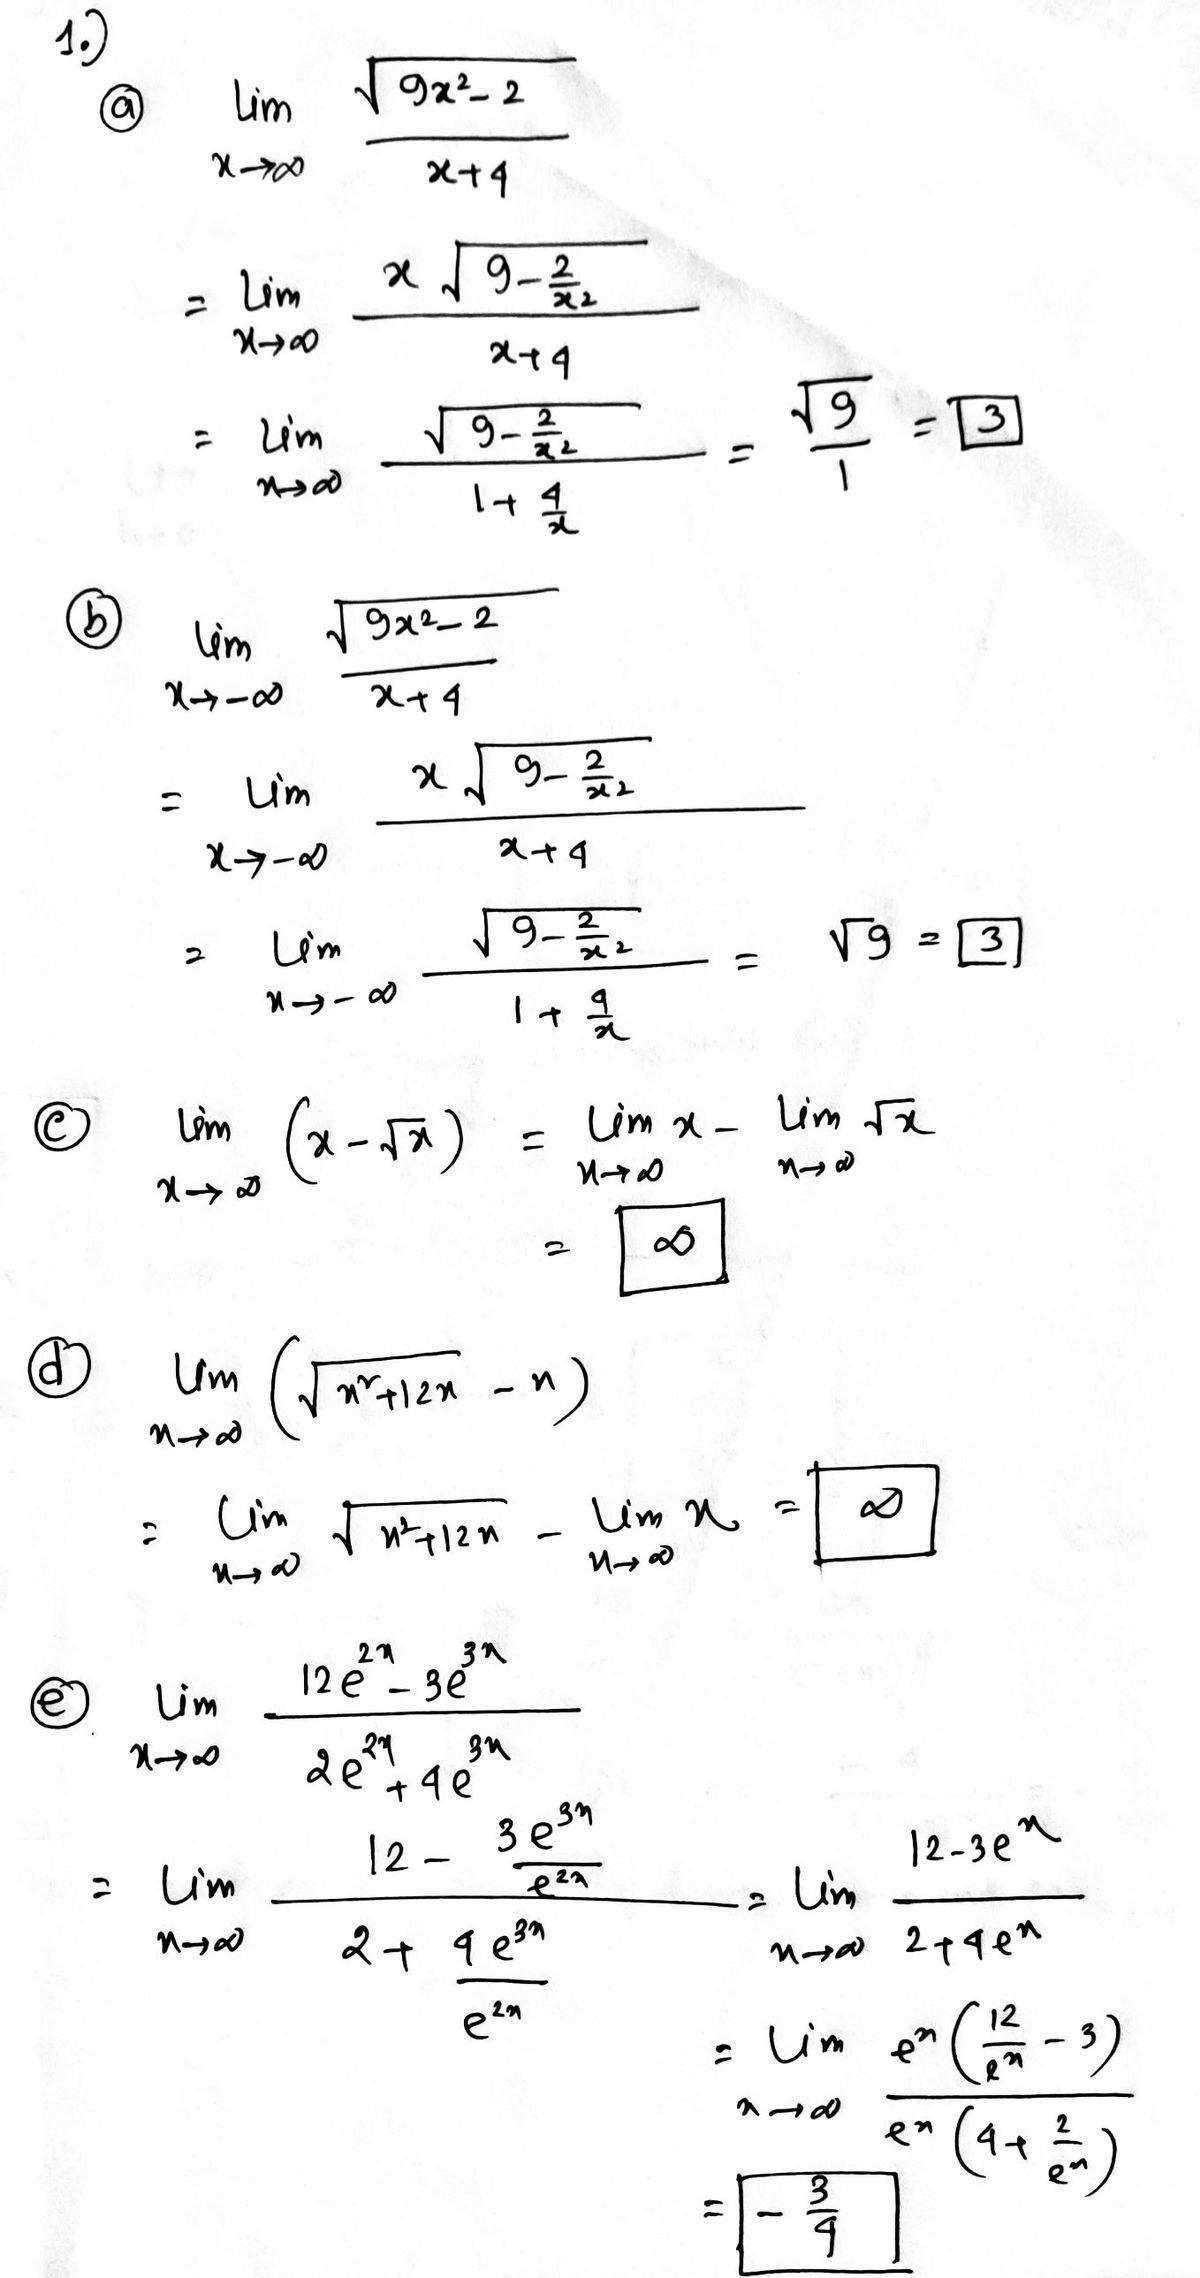 1.)
ⓐ lim x→∞ √(9x² - 2) / (x+4)
= lim x→∞ x√(9 - 2/x²) / (x+4)
= lim x→∞ √(9 - 2/x²) / (1 + 4/x) = √9 / 1 = 3
ⓑ lim x→-∞ √(9x² - 2) / (x+4)
= lim x→-∞ x√(9 - 2/x²) / (x+4)
= lim x→-∞ √(9 - 2/x²) / (1 + 4/x) = √9 = 3
ⓒ lim x→∞ (x - √x) = lim x→∞ x - lim x→∞ √x
= ∞
ⓓ lim x→∞ (√(x²+12x) - x)
= lim x→∞ √(x²+12x) - lim x→∞ x = ∞
ⓔ lim x→∞ (12e^2x - 3e^3x) / (2e^2x + 4e^3x)
= lim x→∞ (12 - 3e^3x/e^2x) / (2 + 4e^3x/e^2x) = lim x→∞ (12-3e^x) / (2+4e^x)
= lim x→∞ e^x(12/e^x - 3) / e^x(4 + 2/e^x)
= -3/4